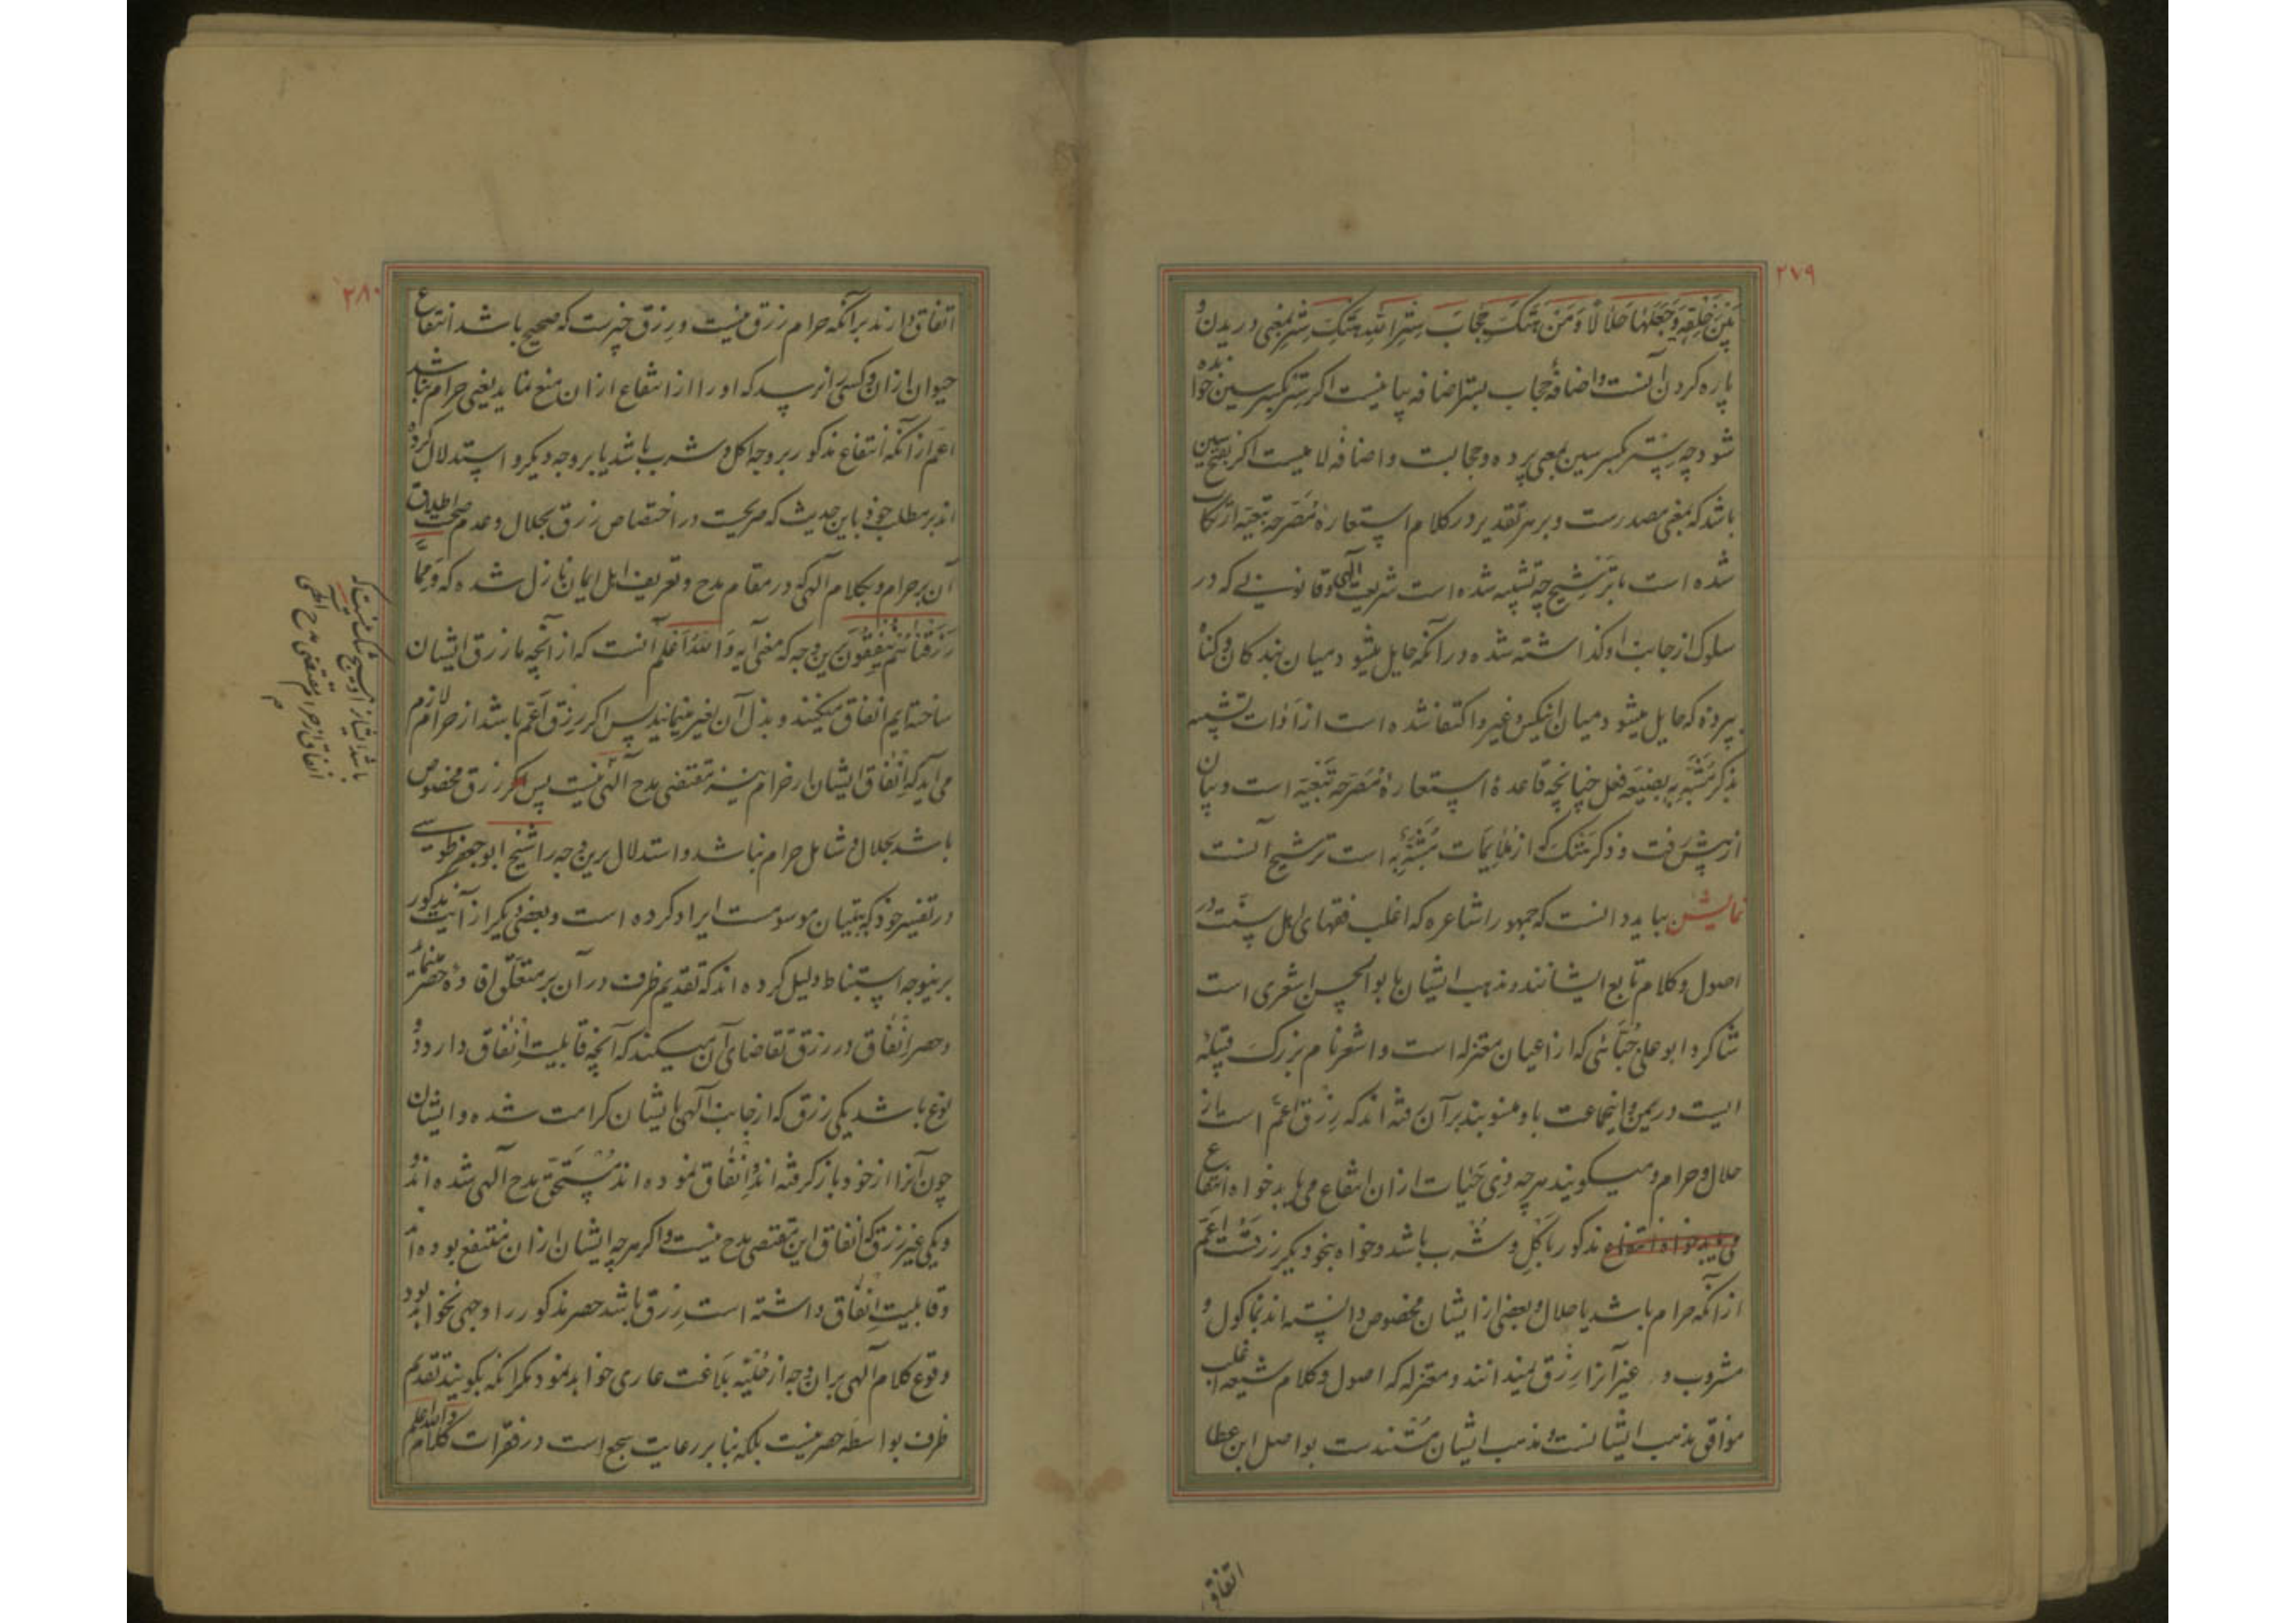 ۲۷۹
بَیْنَ خَلْقِهِ وَجَعَلَهَا حَلَالًا وَمَنْ هَتَکَ حِجَابَ سِتْرِ اللهِ هتک ستر بمعنی دریدن و
پاره کردن آنست و اضافهٔ حجاب بستر اضافه بیانیست اکر ستر بکسر سین خوانده
شود چه سِتر بکسر سین بمعنی پرده و حجابست و اضافه لامیست اکر بفتح سین
باشد که بمعنی مصدرست و بر هر تقدیر در کلام استعارهٔ مُصَرحه تبعیّه ارتکاب
شده است با ترشیح چه تشبیه شده است شریعت الهی و قانونی که در
سلوک از جانب او کذاشته شده در آنکه حایل میشود میان بندکان و کناه
بپرده که حایل میشود میان انیکس و غیر و اکتفا شده است از ادات تشبیه
بذکر مُشَبَّهٌ بِه بصیغه فعل چنانچه قاعدهٔ استعارهٔ مُصَرحه تَبَعیّه است و بیان
از پیش رفت و ذکر هَتَکَ که از ملایمات مُشَبَّهٌ بِه است ترشیح آنست
نمایش بباید دانست که جمهور اشاعره که اغلب فقهای اهل سنّت در
اصول و کلام تابع ایشانند و مذهب ایشان بابو الحسن اشعری است
شاکرد ابو علی جُبّائی که از اعیان معتزله است و اشعر نام بزرک قبیله
ایست در یمن و اینجماعت باو منسوبند بر آن رفته اند که رِزْق اعمّ است از
حلال و حرام و میکویند هر چه ذی حَیٰات از ان انتفاع می یابد خواه انتفاع
می یابد خواه انتفاع مذکور باَکْل و شُرب باشد و خواه بنحو دیکر رزقست اَعَمّ
از آنکه حرام باشد یا حلال و بعضی از ایشان مخصوص دانسته اند بماکول و
مشروب و غیر آنرا رِزْق نمیدانند و معتزله که اصول و کلام شیعه اغلب
موافق مذهب ایشانست و مذهب ایشان مُسْتندست بواصل ابن عطا
اتفاق
۲۸۰
اتفاق دارند بر آنکه حرام رزق نیست و رِزق چیزیست که صحیح باشد انتفاع
حیوان از ان و کسی را نرسد که او را از انتفاع از ان منع نماید یعنی حرام نباشد
اعم از آنکه انتفاع مذکور بر وجه اکل و شرب باشد یا بر وجه دیکر و استدلال کرده
اند بر مطلب خود باین حدیث که صریحست در اختصاص رزق بحلال و عدم صحت اطلاق
آن بر حرام و بکلام الهی که در مقام مدح و تعریف اهل ایمان نازل شده که وَمِمَّا
رَزَقْنَاهُمْ یُنْفِقُونَ برین وجه که معنی آیه وَاللهُ اَعْلَم آنست که از آنچه ما رزق ایشان
ساخته ایم انفاق میکنند و بذل آن بغیر مینمایند پس اکر رِزق اَعَم باشد از حرام لازم
می آید که اِنْفٰاق ایشان از حرام نیز مقتضی مدح الهی نیست پس مکر رزق مخصوص
باشد بحلال و شامل حرام نباشد و استدلال برین وجه را شیخ ابو جعفر طوسی
در تفسیر خود که بتبیان موسومست ایراد کرده است و بعضی دیکر از آیت مذکور
برینوجه استنباط دلیل کرده اند که تقدیم ظرف در آن بر متعلّق افادهٔ حصر مینماید
و حصر اِنْفٰاق در رزق تقاضای آن میکند که آنچه قابلیت اِنْفٰاق دارد دو
نوع باشد یکی رزق که از جانب الهی بایشان کرامت شده و ایشان
چون آنرا از خود باز کرفته اند و اِنْفٰاق نموده اند مُسْتَحَقّ مدح الهی شده اند و
و یکی غیر رزق که انفاق این مقتضی مدح نیست و اکر هر چه ایشان از ان منتفع بوده اند
و قابلیت اِنْفٰاق داشته است رِزق باشد حصر مذکور را وجهی نخواهد بود
وقوع کلام الهی بر ان وجه از حُلیّه بلاغت عاری خواهد نمود مکر انکه بکویند تقدیم
ظرف بواسطه حصر نیست بلکه بنا بر رعایت سجع است در فقرات کلام والله اعلم
باشد ایشانرا و هیچ شک نیست که
انفاق از حرام مقتضی مدح الهی